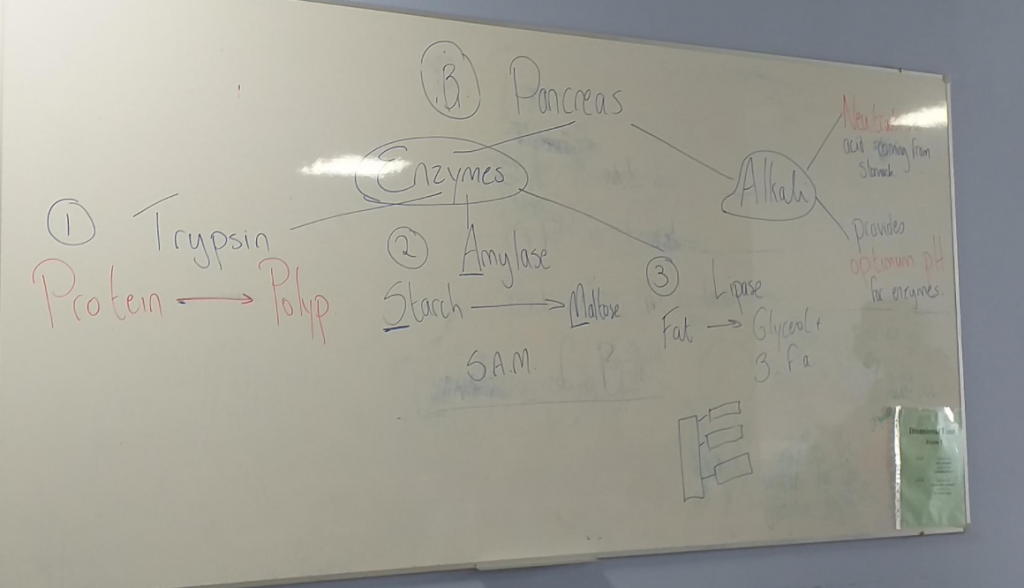 B Pancreas
Enzymes
Alkali
acid coming from
Stomach
provides
optimum pH
for enzymes.
1 Trypsin
Protein → Polyp
2 Amylase
Starch → Maltose
S.A.M.
3 Lipase
Fat → Glycerol +
3. Fa